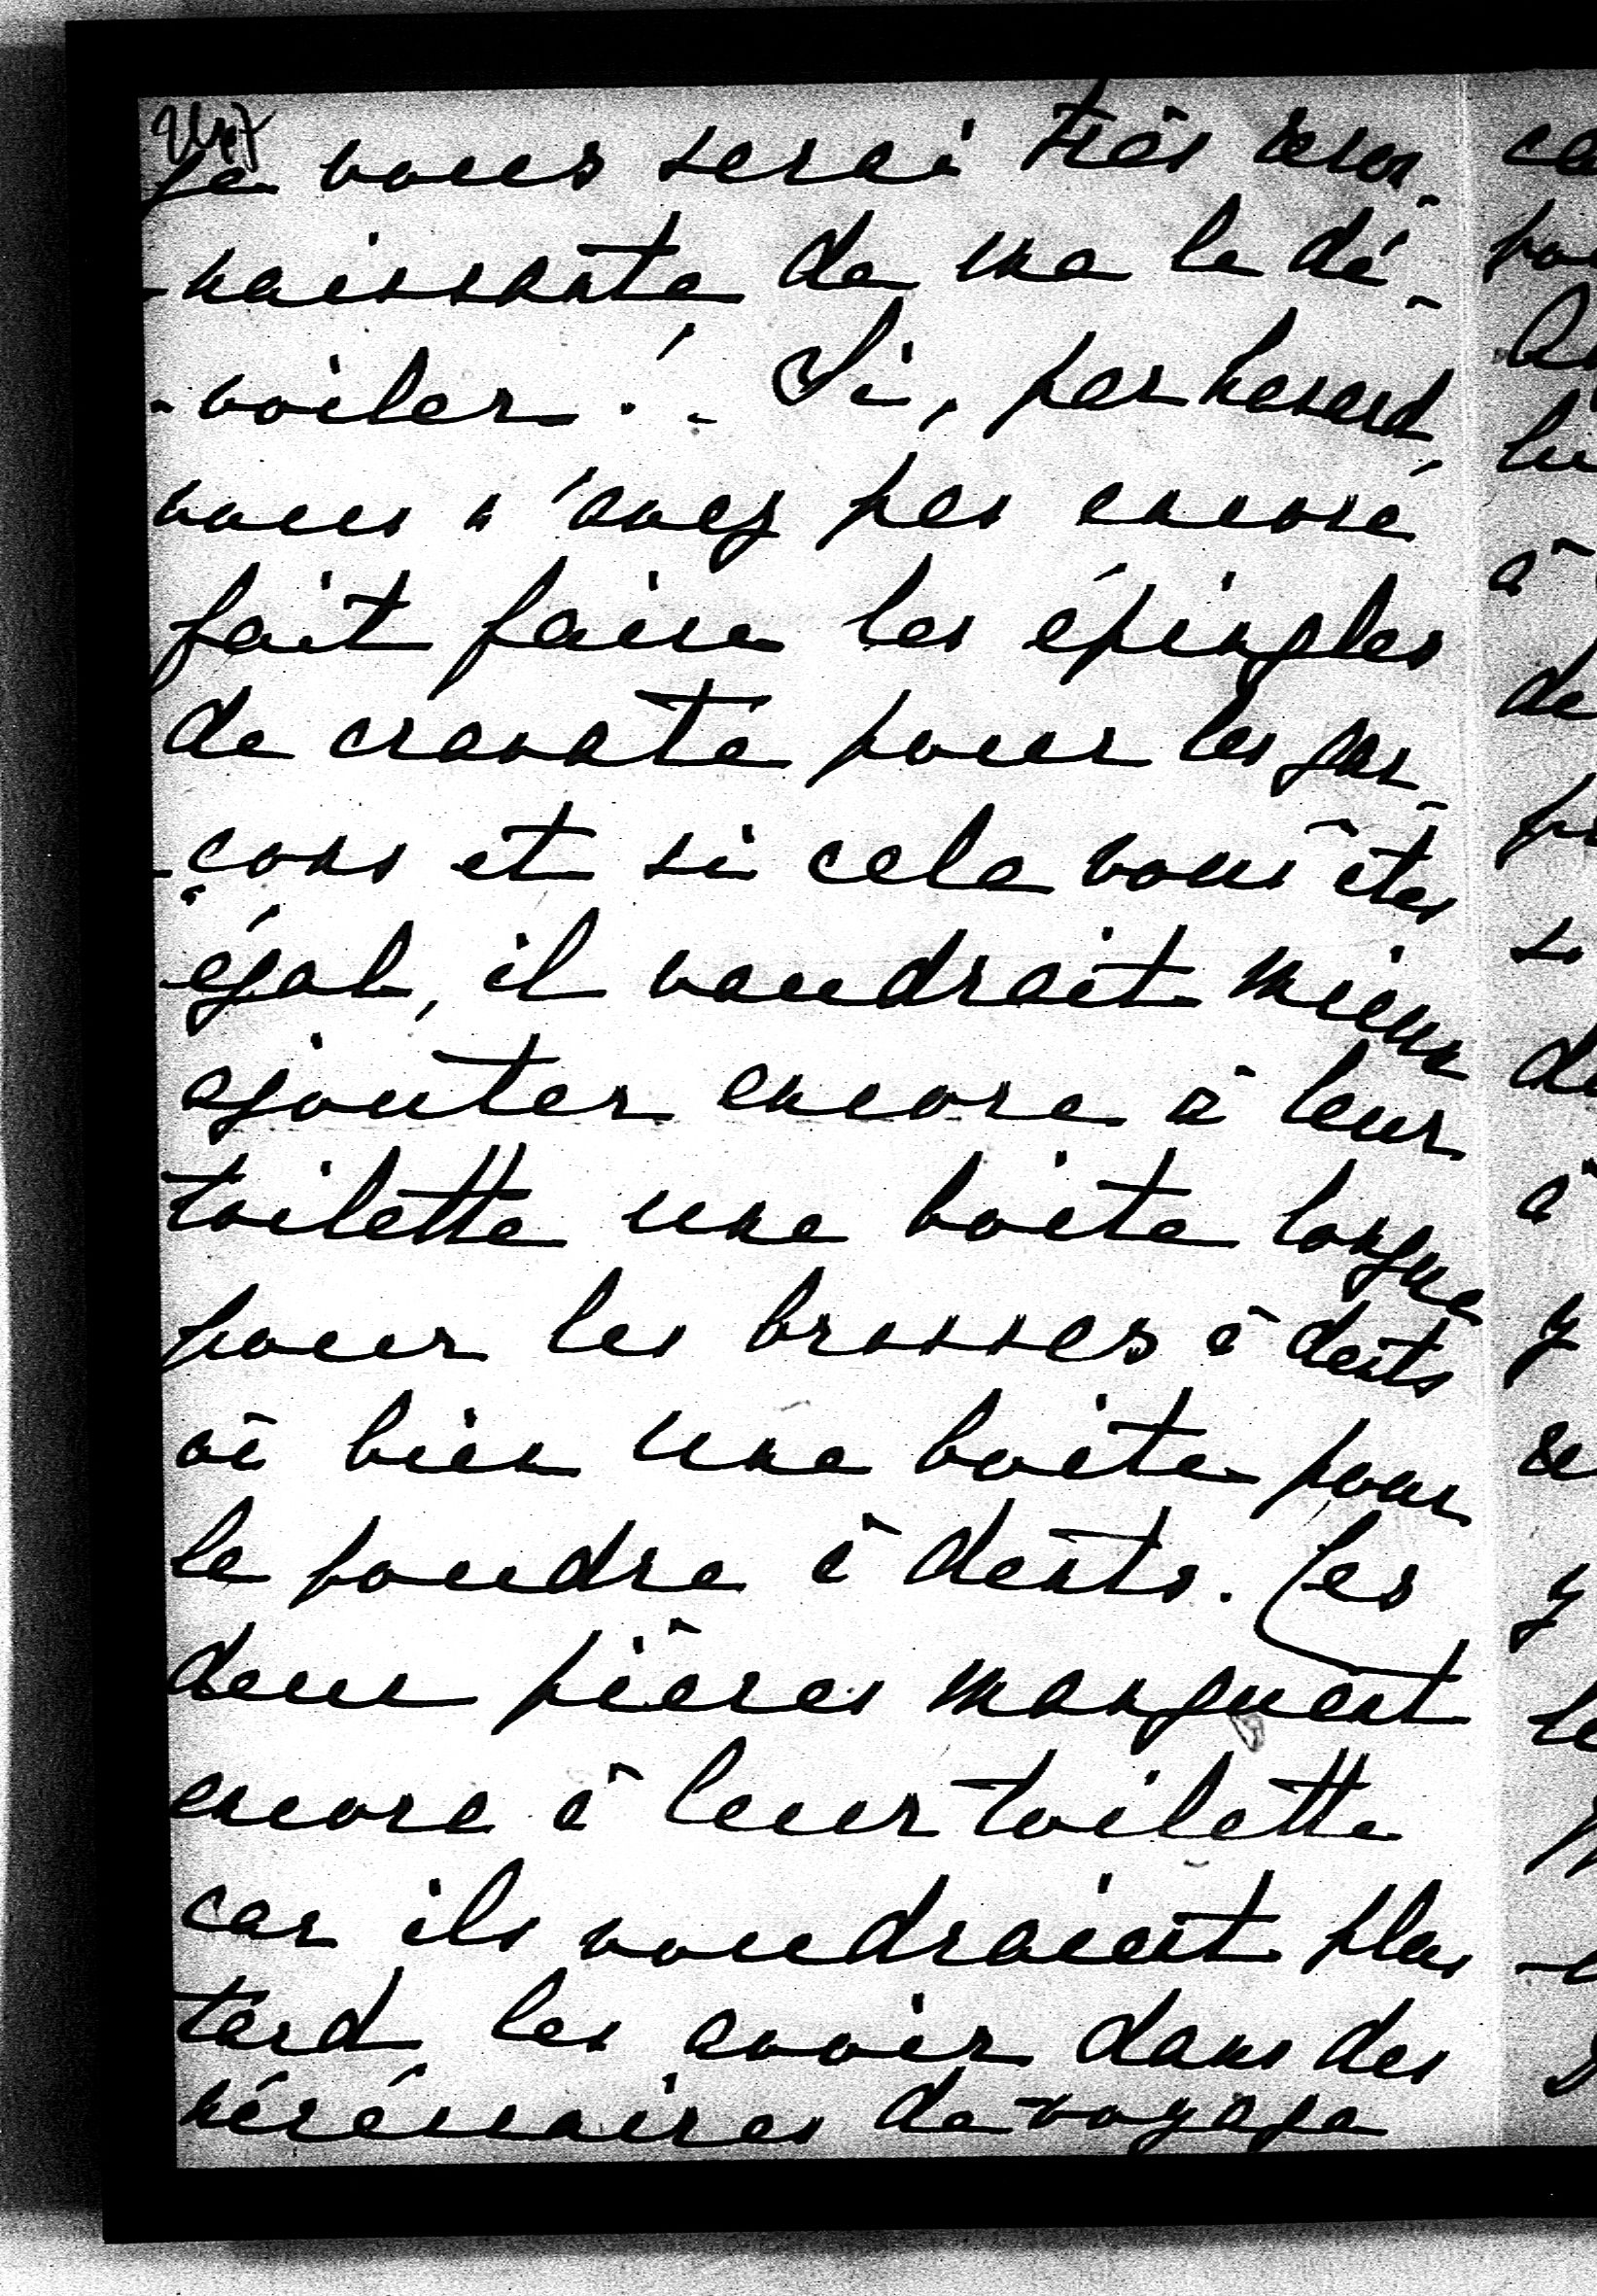 je vous serai très recon-
-naissante de me le dé-
-voiler! - Si, par hasard,
vous n'avez pas encore
fait faire les épingles
de cravate pour les gar-
-çons et si cela vous êtes
égal, il vaudrait mieux
ajouter encore à leur
toilette une boite longue
pour les brosses à dents
où bien une boite pour
la poudre à dents. Ces
deux pièces manquent
encore à leur toilette
car ils voudraient plus
tard les avoir dans des
nécéssaires de voyage